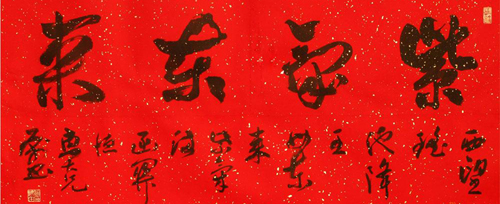 紫气东来
西望
瑶
池降
王
母东
来
紫气
满
函關